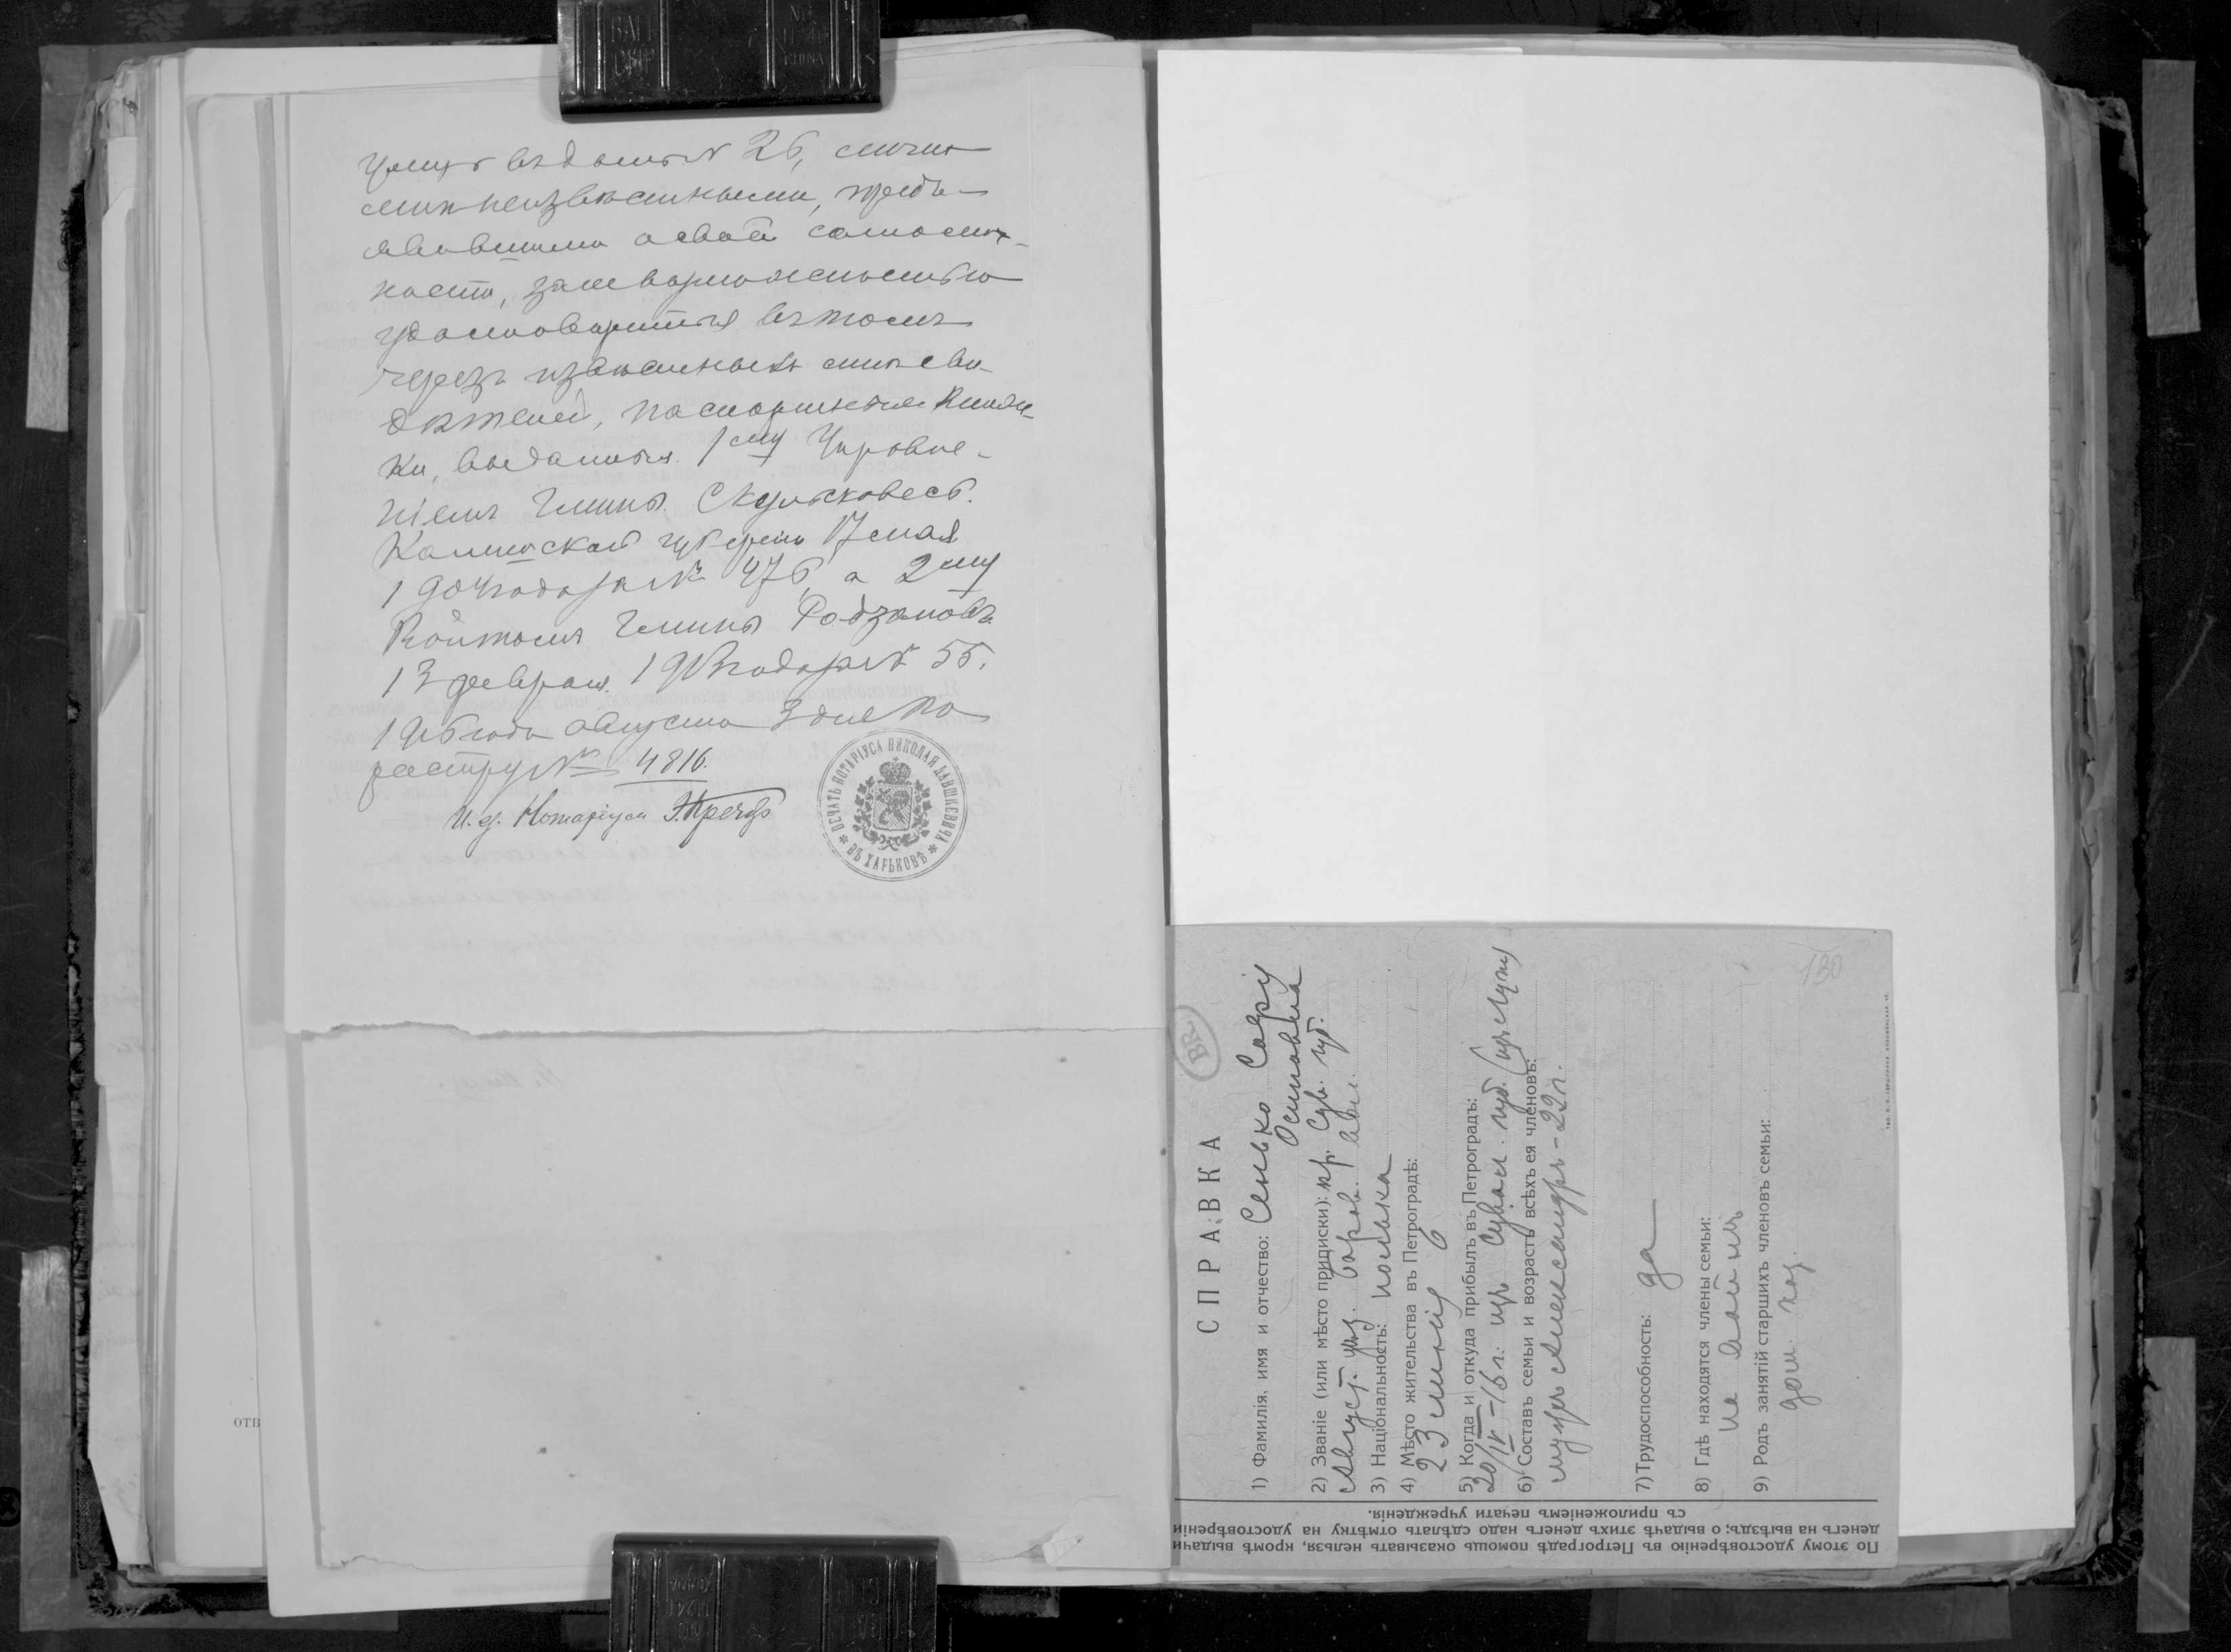 улицѣ въ домѣ № 26, лично
мнѣ неизвѣстными, предъ-
явившими о своей самолич-
ности, за невозможностью
удостовѣриться въ томъ
черезъ извѣстныхъ мнѣ сви-
дѣтелей, паспортныя книж-
ки, выданныя: 1му Управле-
ніемъ Гмины
Калишской губерніи 17 мая
1904 года за № 476, а 2му
Войтомъ Гмины Радзановъ
13 февраля 1913 года за № 55.
1916 года августа 3 дня. По
реестру № 4816.
И. об. Нотаріуса
ПЕЧАТЬ НОТАРІУСА НИКОЛАЯ ДАВШКЕВИЧА
ВЪ ХАРЬКОВѢ
ОТВ
130
СПРАВКА
1) Фамилія, имя и отчество: Сенько
Осиповна
2) Званіе (или мѣсто приписки): кр. Сув. губ.
Август. уѣз.
3) Національность: полька
4) Мѣсто жительства въ Петроградѣ:
23 линія 6
5) Когда и откуда прибылъ въ Петроградъ:
20/IV-16 г. изъ Сувал. губ.
6) Составъ семьи и возрастъ всѣхъ ея членовъ:
мужъ Александръ - 22 г.
7) Трудоспособность: да
8) Гдѣ находятся члены семьи:
на войнѣ
9) Родъ занятій старшихъ членовъ семьи:
дом. хоз.
По этому удостовѣренію въ Петроградѣ помощь оказывать нельзя, кромѣ выдачи
денегъ на выѣздъ; о выдачѣ этихъ денегъ надо сдѣлать отмѣтку на удостовѣреніи
съ приложеніемъ печати учрежденія.